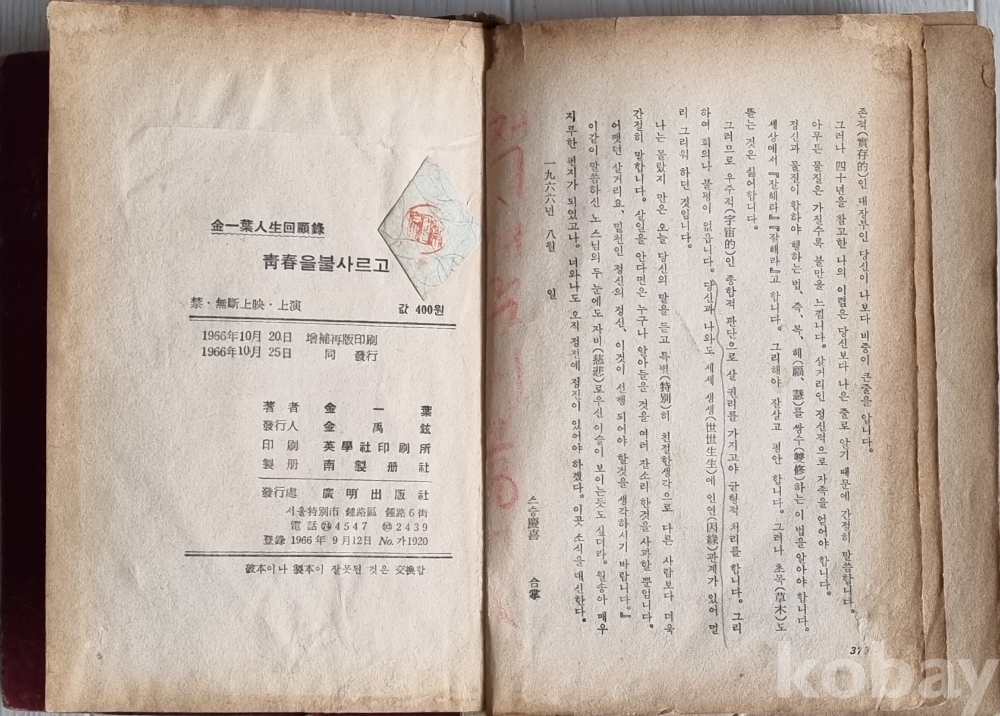 존적(實存的)인 대장부인 당신이 나보다 비중이 큰줄을 압니다.
그러나 四十년을 참고한 나의 이렴은 당신보다 나은 줄로 알기 때문에 간절히 말씀합니다.
아무튼 물질은 가질수록 불만을 느낍니다. 살거리인 정신적으로 자족을 얻어야 합니다.
정신과 물질이 합하야 행하는 법, 즉, 복, 혜(福, 慧)를 쌍수(雙修)하는 이 법을 알아야 합니다.
세상에서 『잘해라』『잘해라』고 합니다. 그리해야 잘살고 평안 합니다. 그러나 초목(草木)도
뜯는 것은 싫어합니다.
그러므로 우주적(宇宙的)인 종합적 판단으로 살 권리를 가지고야 균형적 처리를 합니다. 그리
하여 회의나 불평이 없읍니다. 당신과 나와도 세세 생생(世世生生)에 인연(因緣)관계가 있어 멀
리 그리워 하던 것입니다.
나는 몰랐지 만은 오늘 당신의 말을 듣고 특별(特別)히 친절한생각으로 다른 사람보다 더욱
간절히 말합니다. 살일을 안다면은 누구나 알아들을 것을 여러 잔소리 한것을 사과할 뿐입니다.
어쨋던 살거리요, 밑천인 정신의 정신, 이것이 선행 되어야 할것을 생각하시기 바랍니다.』
이같이 말씀하신 노 스님의 두 눈에도 자비(慈悲)로우신 이슬이 보이는듯도 싶더라. 월송아 매우
지루한 편지가 되였고나. 너와나도 오직 정진에 정진이 있어야 하겠다. 이곳 소식을 대신한다.
一九六六년 八월 일
스승慶喜 合掌
373
金一葉人生回顧錄
靑春을불사르고
값 400원
禁・無斷上映・上演
1966年10月 20日 增補再版印刷
1966年10月 25日 同 發行
著者 金一葉
發行人 金禹鉉
印刷 英學社印刷所
製册 南製册社
發行處 廣明出版社
서울特別市 鍾路區 鍾路6街
電話 ㉔4547 2439
登錄 1966年 9月12日 No.가1920
破本이나 製本이 잘못된 것은 交換함
kobay